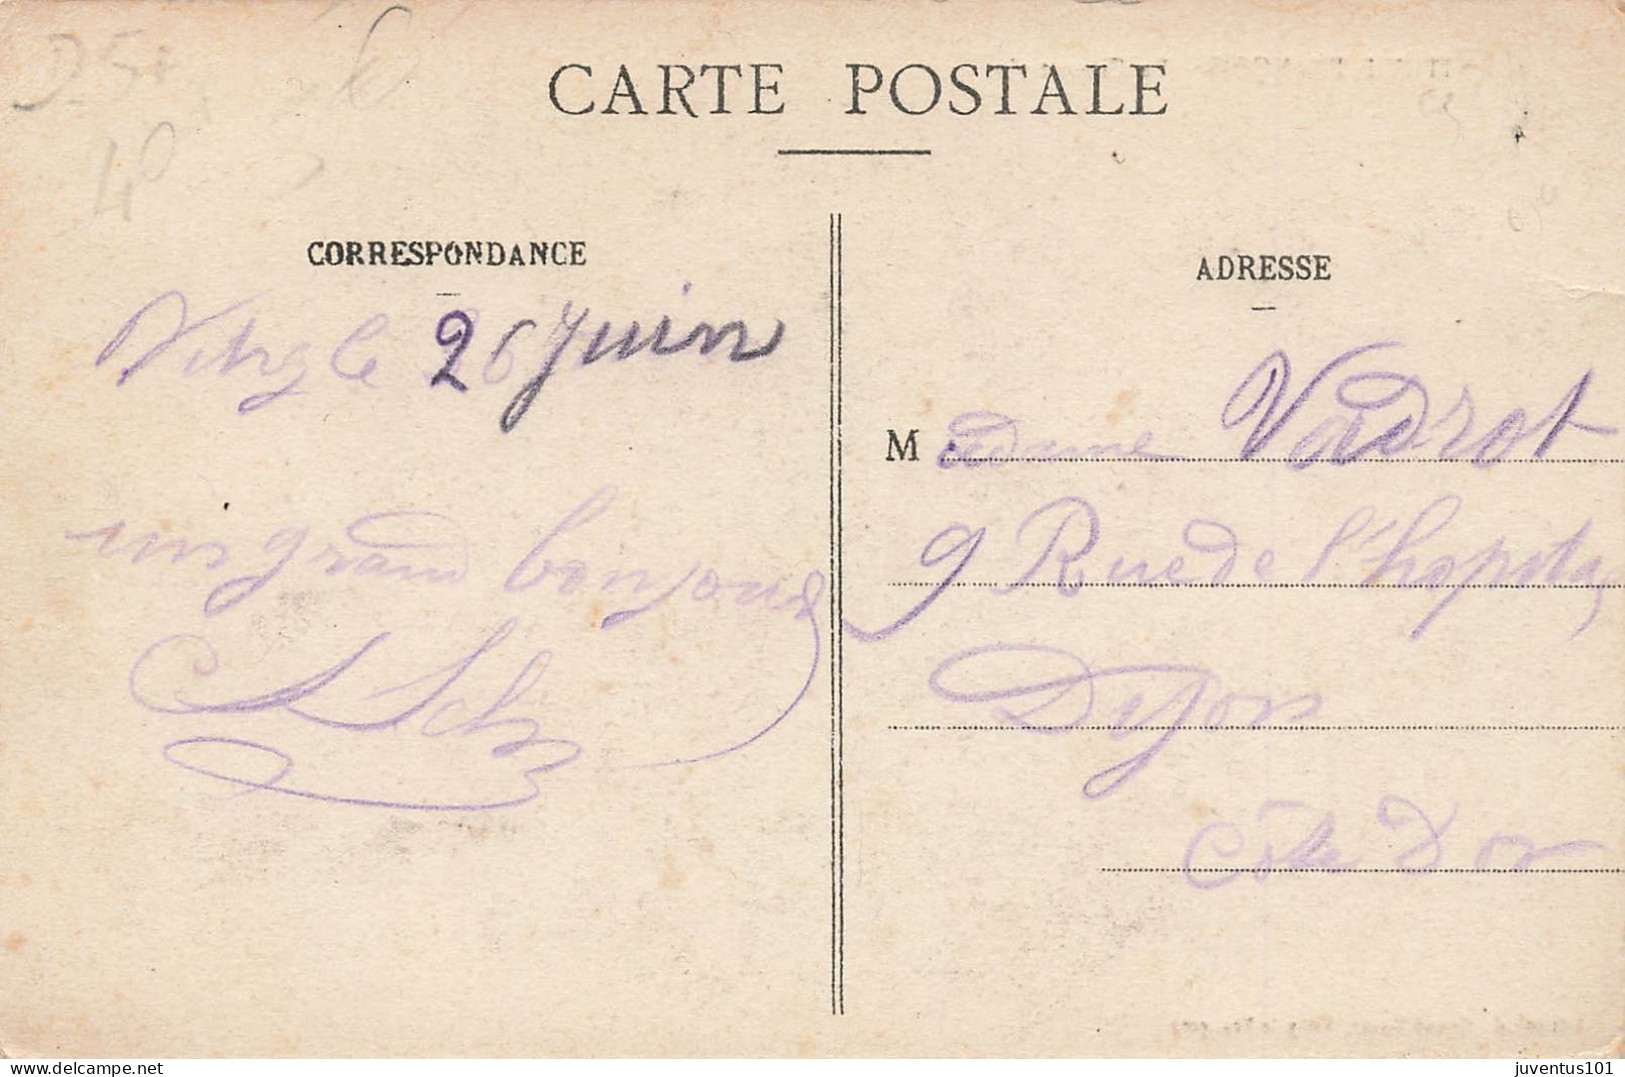 CARTE POSTALE
CORRESPONDANCE
Vitry le 26 Juin
un grand bonjour
ADRESSE
Madame Vadrot
9 Rue de l'hopital
Dijon
Côte D'or
juventus101